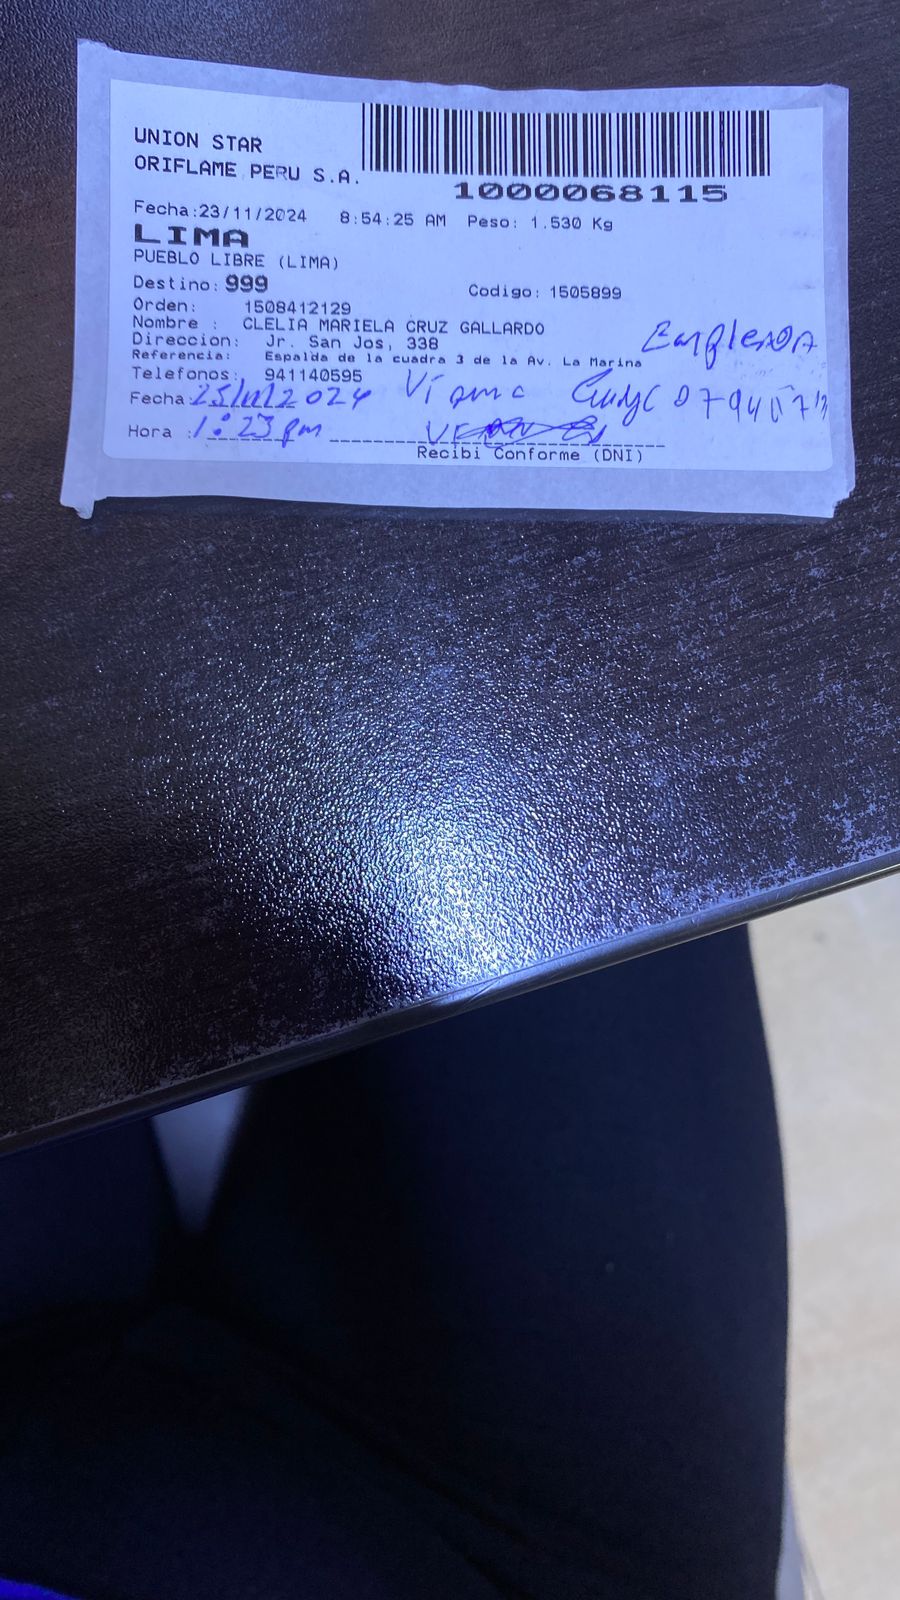 UNION STAR
ORIFLAME PERU S.A.
1000068115
Fecha:23/11/2024 8:54:25 AM Peso: 1.530 Kg
LIMA
PUEBLO LIBRE (LIMA)
Destino: 999 Codigo: 1505899
Orden: 1508412129
Nombre : CLELIA MARIELA CRUZ GALLARDO
Direccion: Jr. San Jos, 338
Referencia: Espalda de la cuadra 3 de la Av. La Marina
Empleada
Telefonos: 941140595
Fecha: 25/11/2024
Hora : 1:23 pm
Recibi Conforme (DNI)